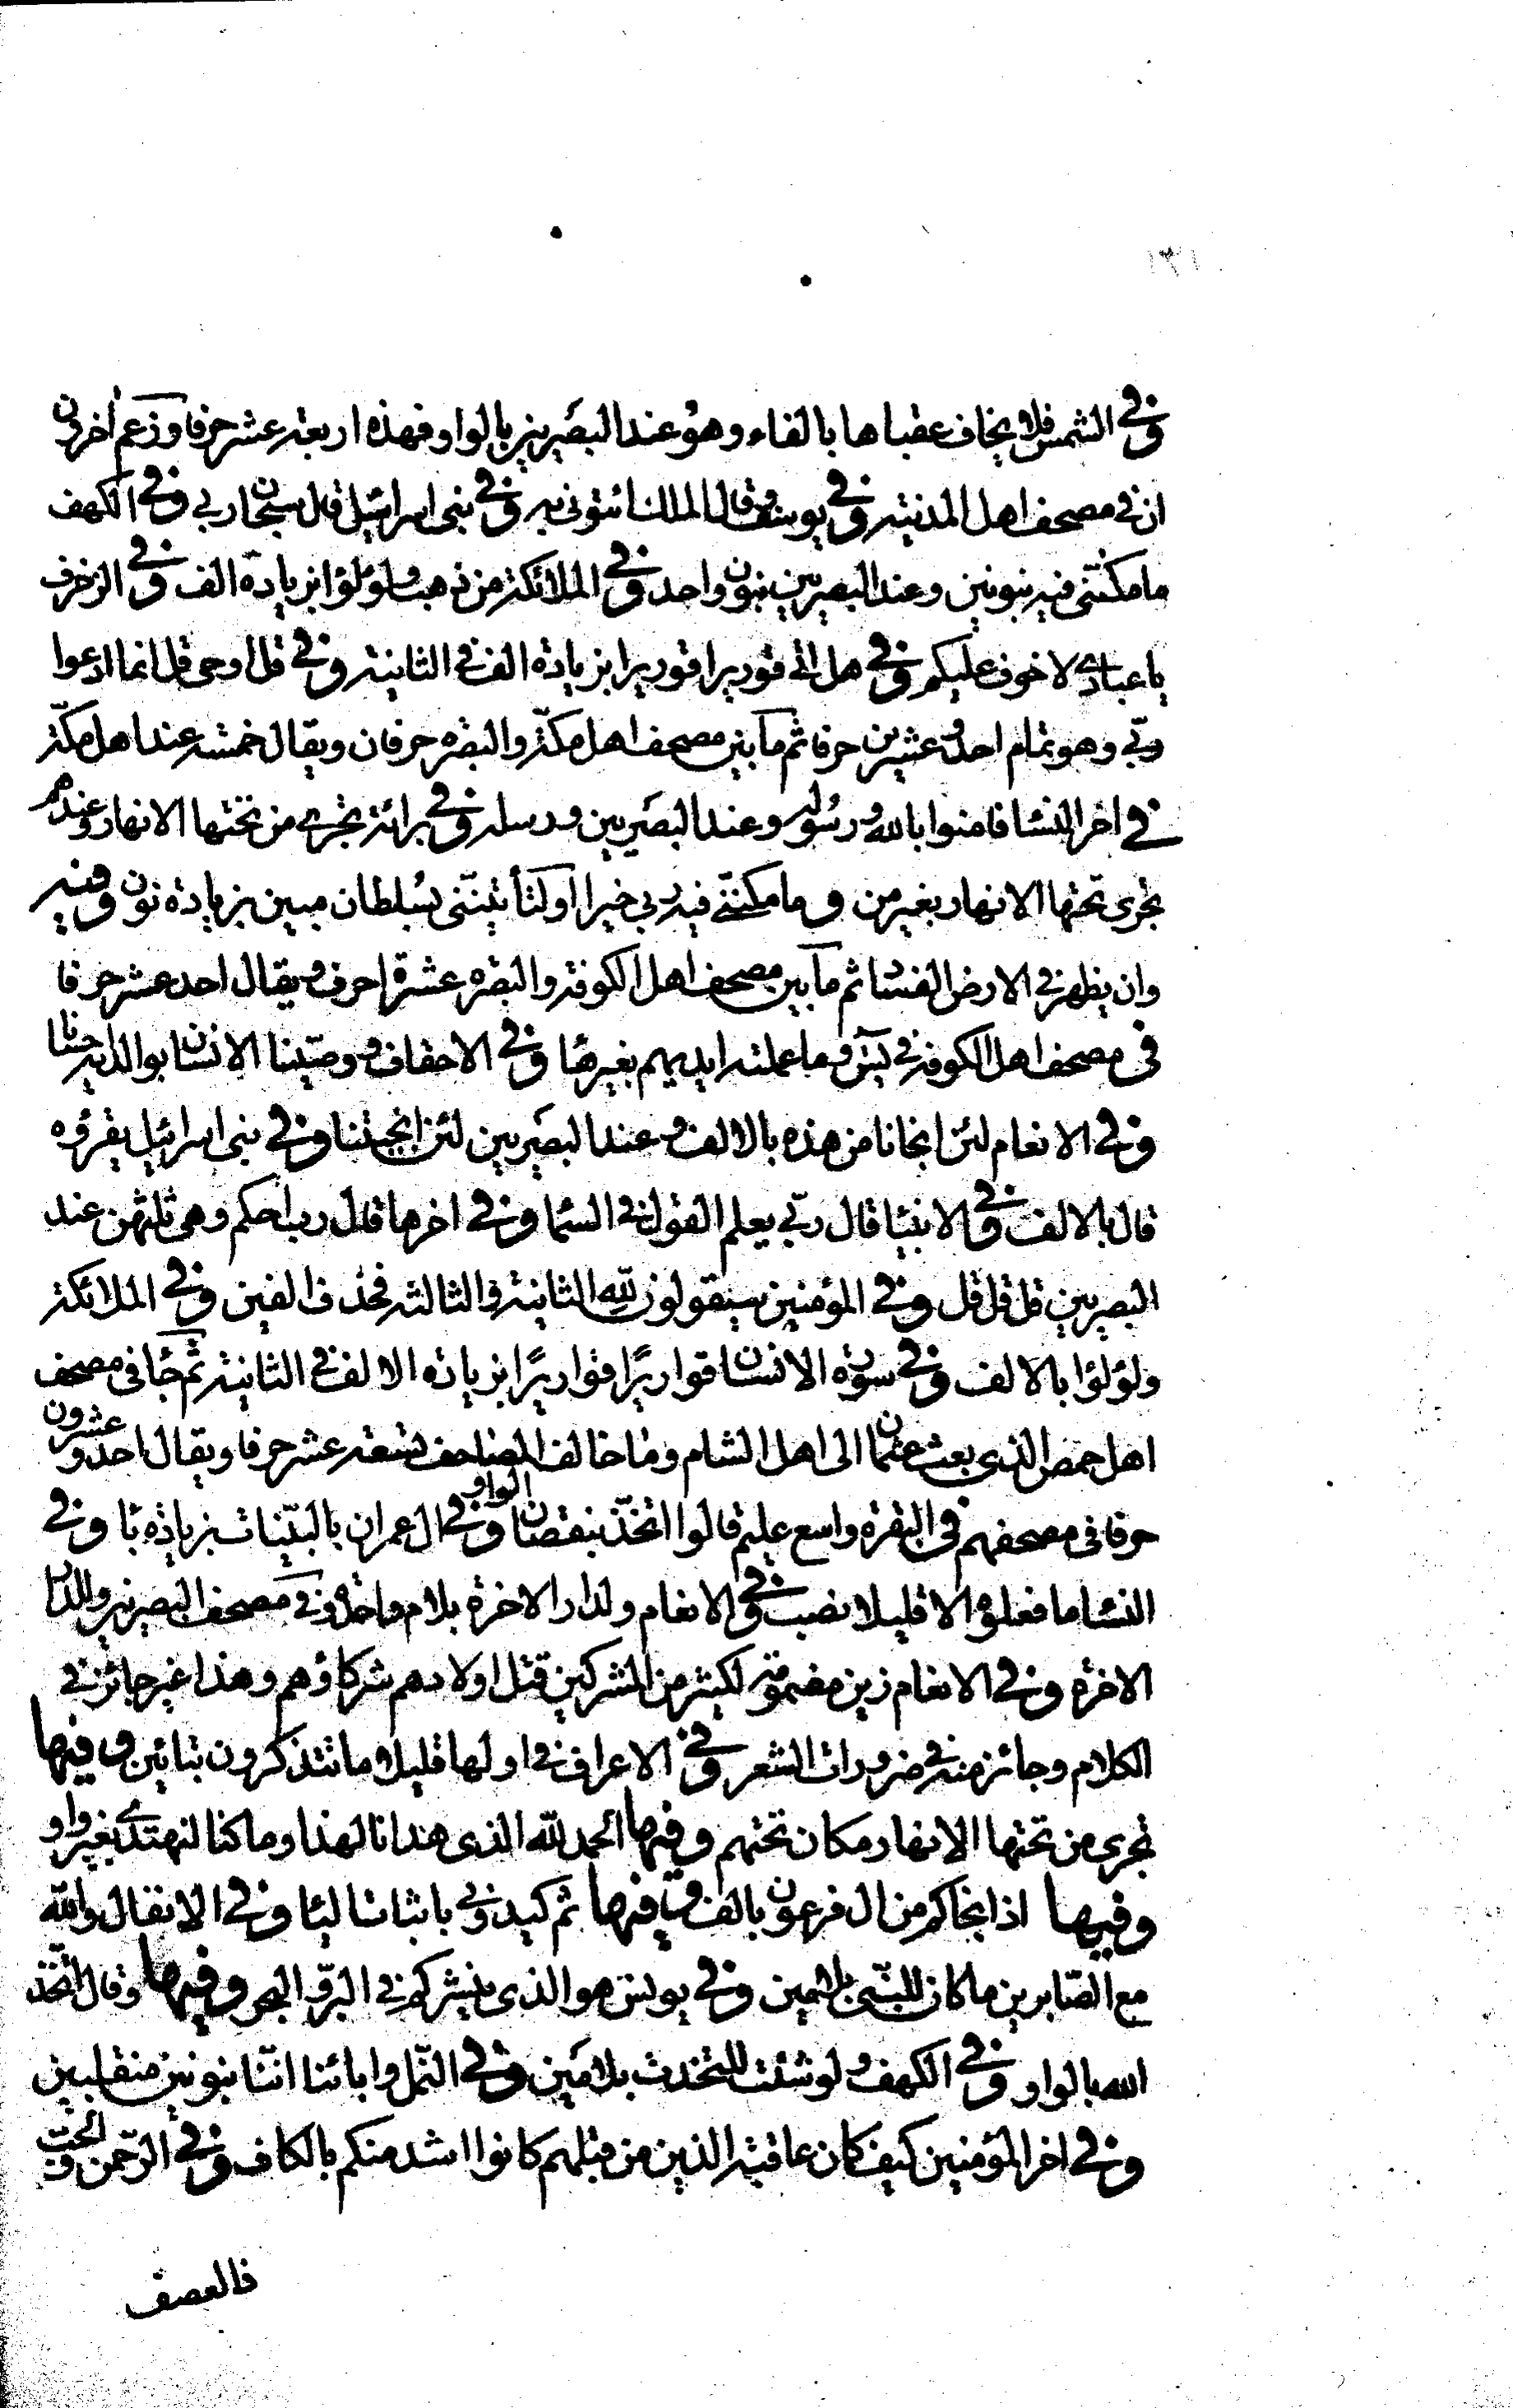 وفي الشمس فلا يخاف عقباها بالفاء وهو عند البصريين بالواو فهذه اربعة عشر حرفا وزعم اخرون
ان في مصحف اهل المدينة وفي يوسف وقال الملك ائتوني به وفي بني اسرائيل قال سبحان ربي وفي الكهف
ما مكنني فيه بنونين وعند البصريين بنون واحد وفي الملائكة من ذهب ولؤلؤا بزيادة الف وفي الزخرف
يا عبادي لا خوف عليكم وفي هل اتى قوريرا قوريرا بزيادة الف في الثانية وفي قل اوحي قل انما ادعوا
ربي وهو تمام احد وعشرين حرفا ثم ما بين مصحف اهل مكة والبصره حرفان ويقال خمسة عند اهل مكة
في اخر النسا فامنوا بالله ورسوله وعند البصريين ورسله وفي برائة تجري من تحتها الانهار وعندهم
تجري تحتها الانهار بغير من وما مكنني فيه ربي خيرا اولتأتينني بسلطان مبين بزيادة نون وفيه
وان يظهر في الارض الفسا ثم ما بين مصحف اهل الكوفة والبصره عشرة احرف ويقال احد عشر حرفا
في مصحف اهل الكوفة في يس وما عملته ايديهم بغيرها وفي الاحقاف ووصينا الانسان بوالديه احسانا
وفي الانعام لئن انجانا من هذه بالالف وعند البصريين لئن انجيتنا وفي بني اسرائيل يقرؤه
قال بالالف وفي الانبيا قال ربي يعلم القول في السما وفي اخرها قال رب احكم وهي ثلثهن عند
البصريين قل قل قل وفي المؤمنين سيقولون لله الثانية والثالثة فحذف الفين وفي الملائكة
ولؤلؤا بالالف وفي سورة الانسان قواريرا قواريرا بزيادة الالف في الثانية ثم جا في مصحف
اهل حمص الذي بعث عثمان الى اهل الشام وما خالف المصاحف تسعة عشر حرفا ويقال احد وعشرون
حرفا في مصحفهم في البقرة واسع عليم قالوا اتخذ بنقصان الواو وفي ال عمران بالبينات بزيادة با وفي
النسا ما فعلوه الا قليلا نصب وفي الانعام ولدار الاخرة بلام واحدة وفي مصحف البصريين وللدار
الاخرة وفي الانعام زين مضمومة لكثير من المشركين قتل اولادهم شركاؤهم وهذا غير جائز في
الكلام وجائز منه في ضرورات الشعر وفي الاعراف في اولها قليلا ما تتذكرون بتائين وفيها
تجري من تحتها الانهار مكان تحتهم وفيها الحمد لله الذي هدانا لهذا وما كنا لنهتدي بغير واو
وفيها اذ انجاكم من ال فرعون بالف وفيها ثم كيدوني باثبات اليا وفي الانفال والله
مع الصابرين ما كان للنبي بلامين وفي يونس هو الذي ينشركم في البر والبحر وفيها وقال اتخذ
الله بالواو وفي الكهف ولو شئت للتخذت بلامين وفي النمل وابائنا اننا بنونين منقلبين
وفي اخر المؤمنين كيف كان عاقبة الذين من قبلهم كانوا اشد منكم بالكاف وفي الرحمن والحب
فالعصف